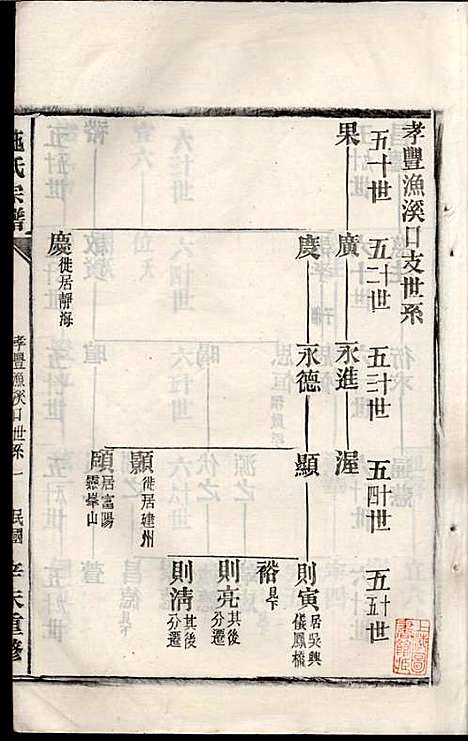 孝豐漁溪口支世系
五十世
五十一世
五十二世
五十三世
五十四世
五十五世
果
廣
永進
渥
慶
永德
顯
則寅
居吳興
儀鳳橋
裕
見下
則亮
其後
分遷
則清
其後
分遷
顥
徙居建州
頤
居富陽
靈峯山
慶
徙居靜海
施氏宗譜
孝豐漁溪口世系
一
民國
辛未重修